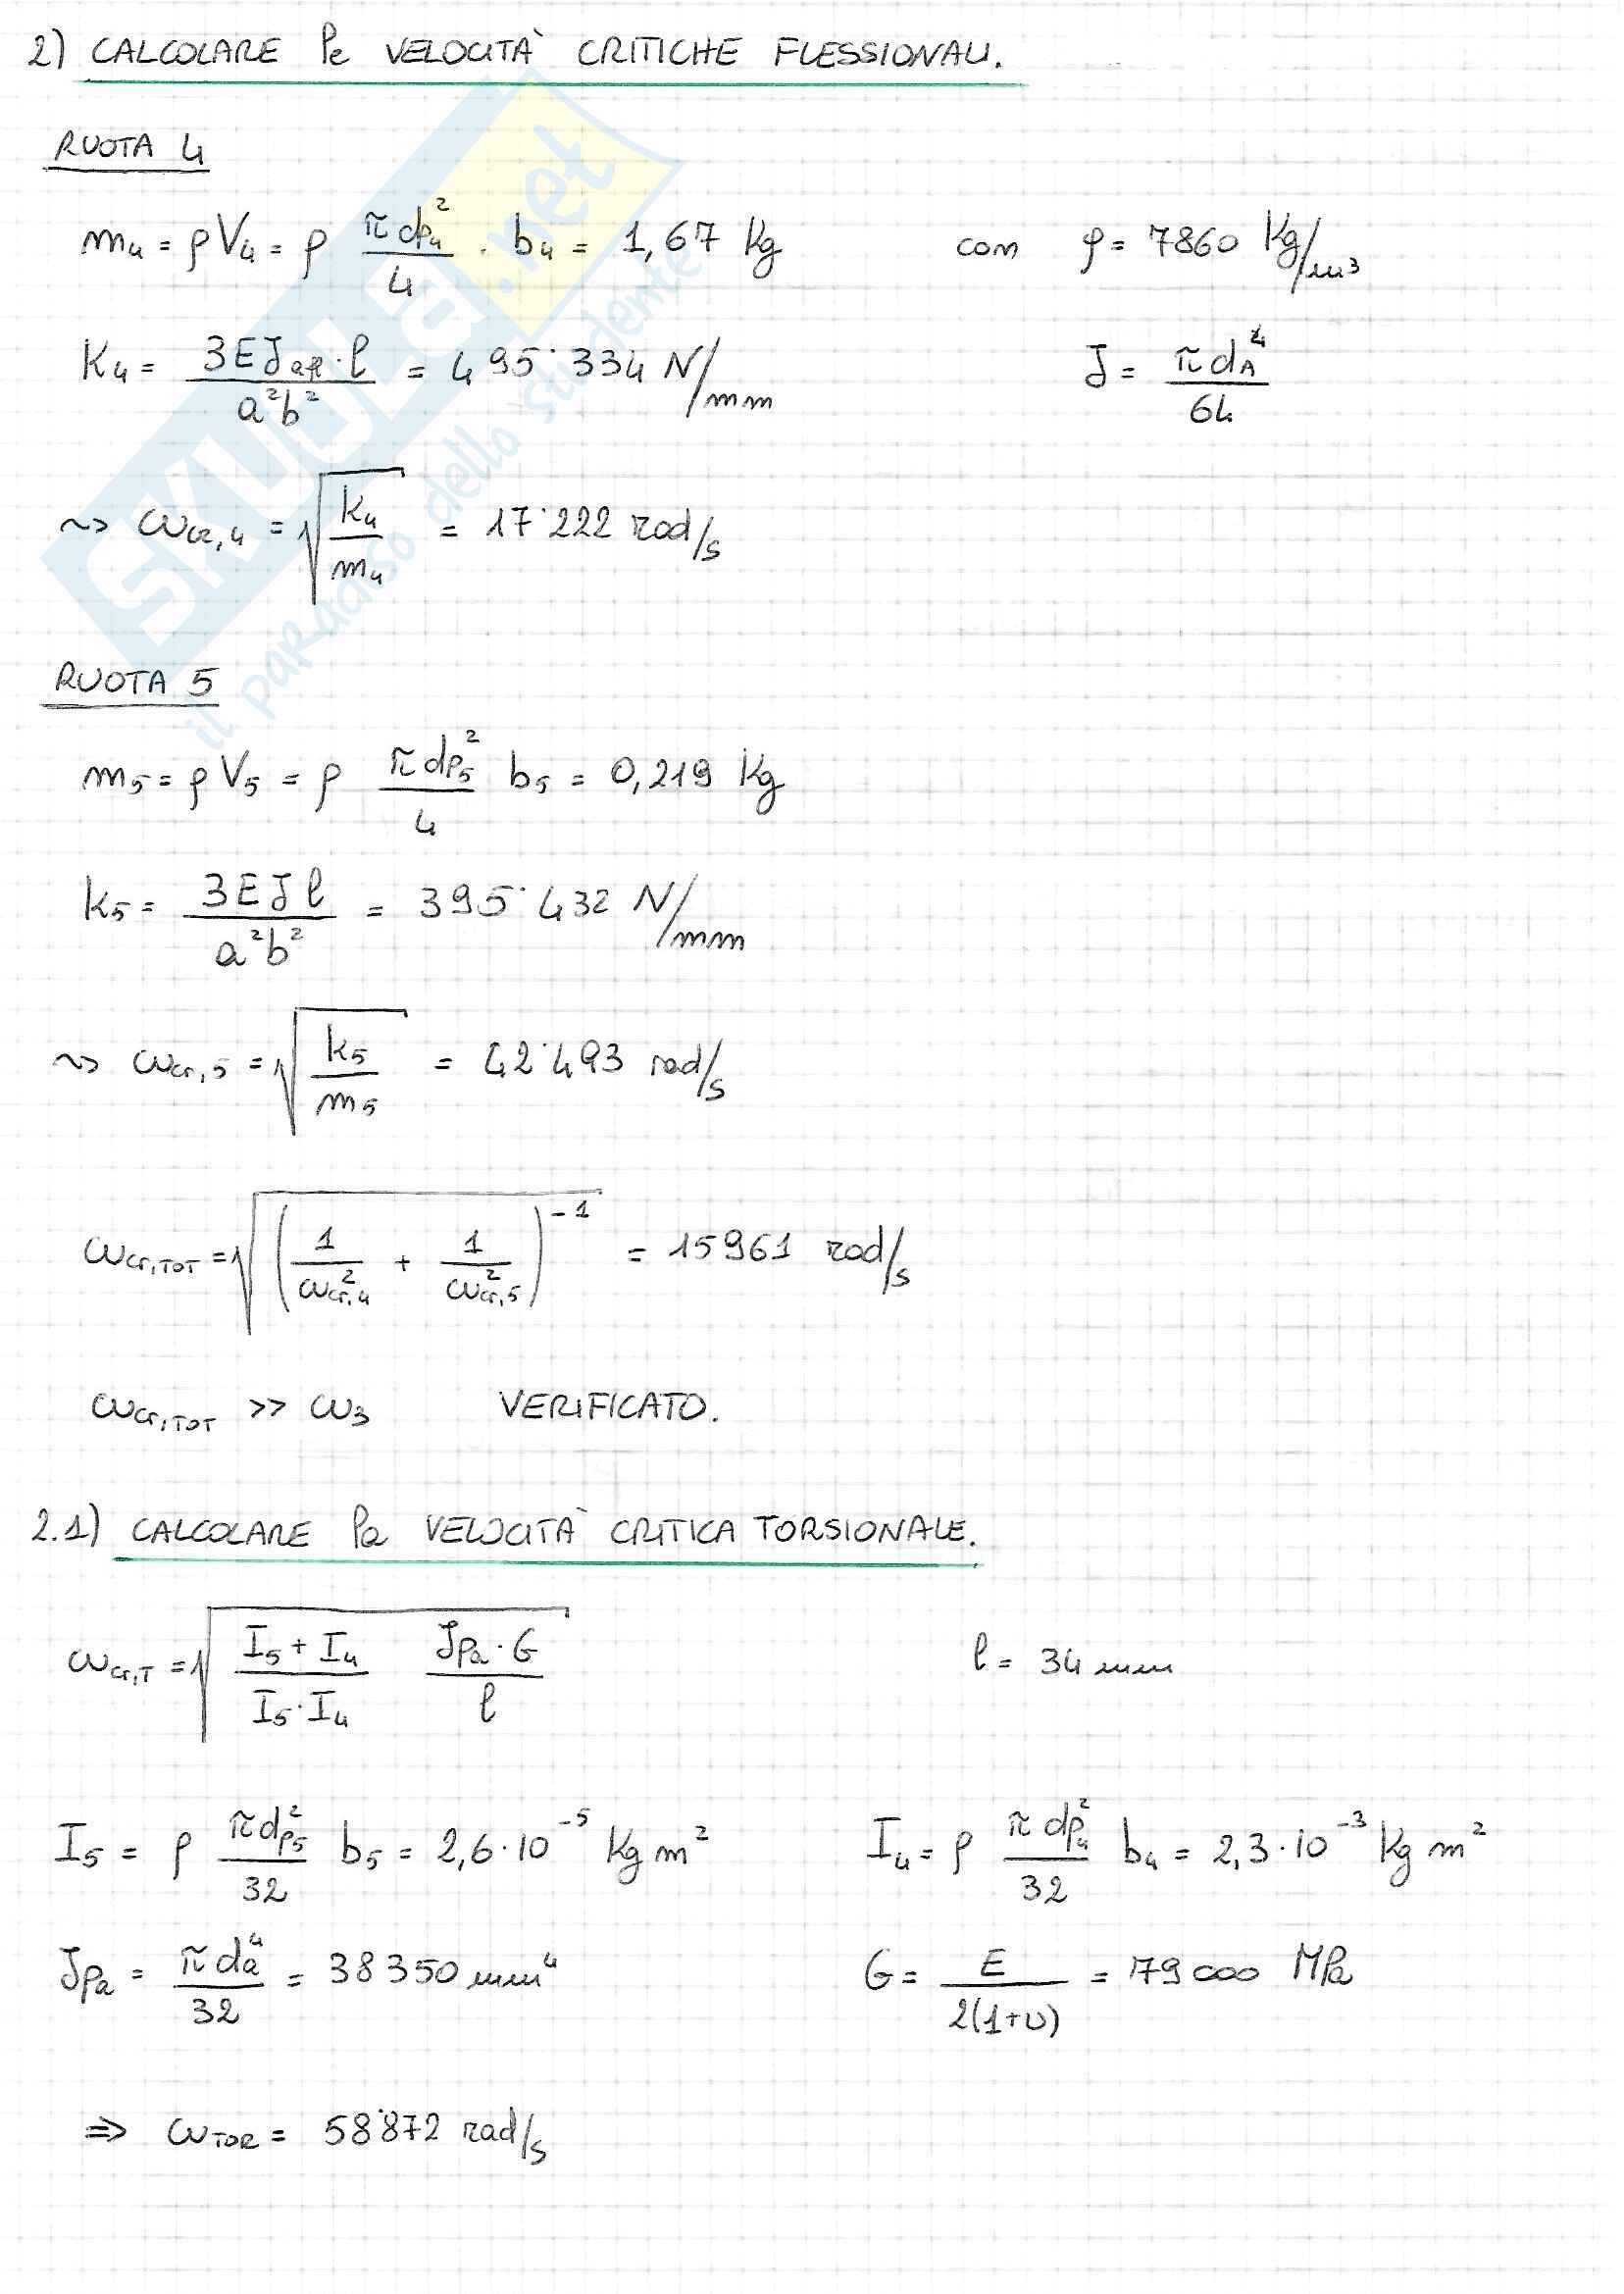 2) CALCOLARE le VELOCITÀ CRITICHE FLESSIONALI.
RUOTA 4
m₄ = ρV₄ = ρ πdp₄²/4 · b₄ = 1,67 Kg con ρ = 7860 Kg/m³
K₄ = 3EJ·l/a²b² = 495˙334 N/mm J = πd_A⁴/64
~> ω_cr,4 = √(K₄/m₄) = 17˙222 rad/s
RUOTA 5
m₅ = ρV₅ = ρ πdp₅²/4 b₅ = 0,219 Kg
K₅ = 3EJl/a²b² = 395˙432 N/mm
~> ω_cr,5 = √(K₅/m₅) = 42˙493 rad/s
ω_cr,TOT = √(1/ω²_cr,4 + 1/ω²_cr,5)⁻¹ = 15961 rad/s
ω_cr,TOT >> ω₃ VERIFICATO.
2.1) CALCOLARE la VELOCITÀ CRITICA TORSIONALE.
ω_cr,T = √(I₅+I₄/I₅·I₄ Jpa·G/l) l = 34 mm
I₅ = ρ πdp₅²/32 b₅ = 2,6·10⁻⁵ Kg m² I₄ = ρ πdp₄²/32 b₄ = 2,3·10⁻³ Kg m²
Jpa = πda⁴/32 = 38350 mm⁴ G = E/2(1+ν) = 79000 MPa
⇒ ω_TOR = 58˙872 rad/s
SKUOLA.net
il paradiso dello studente